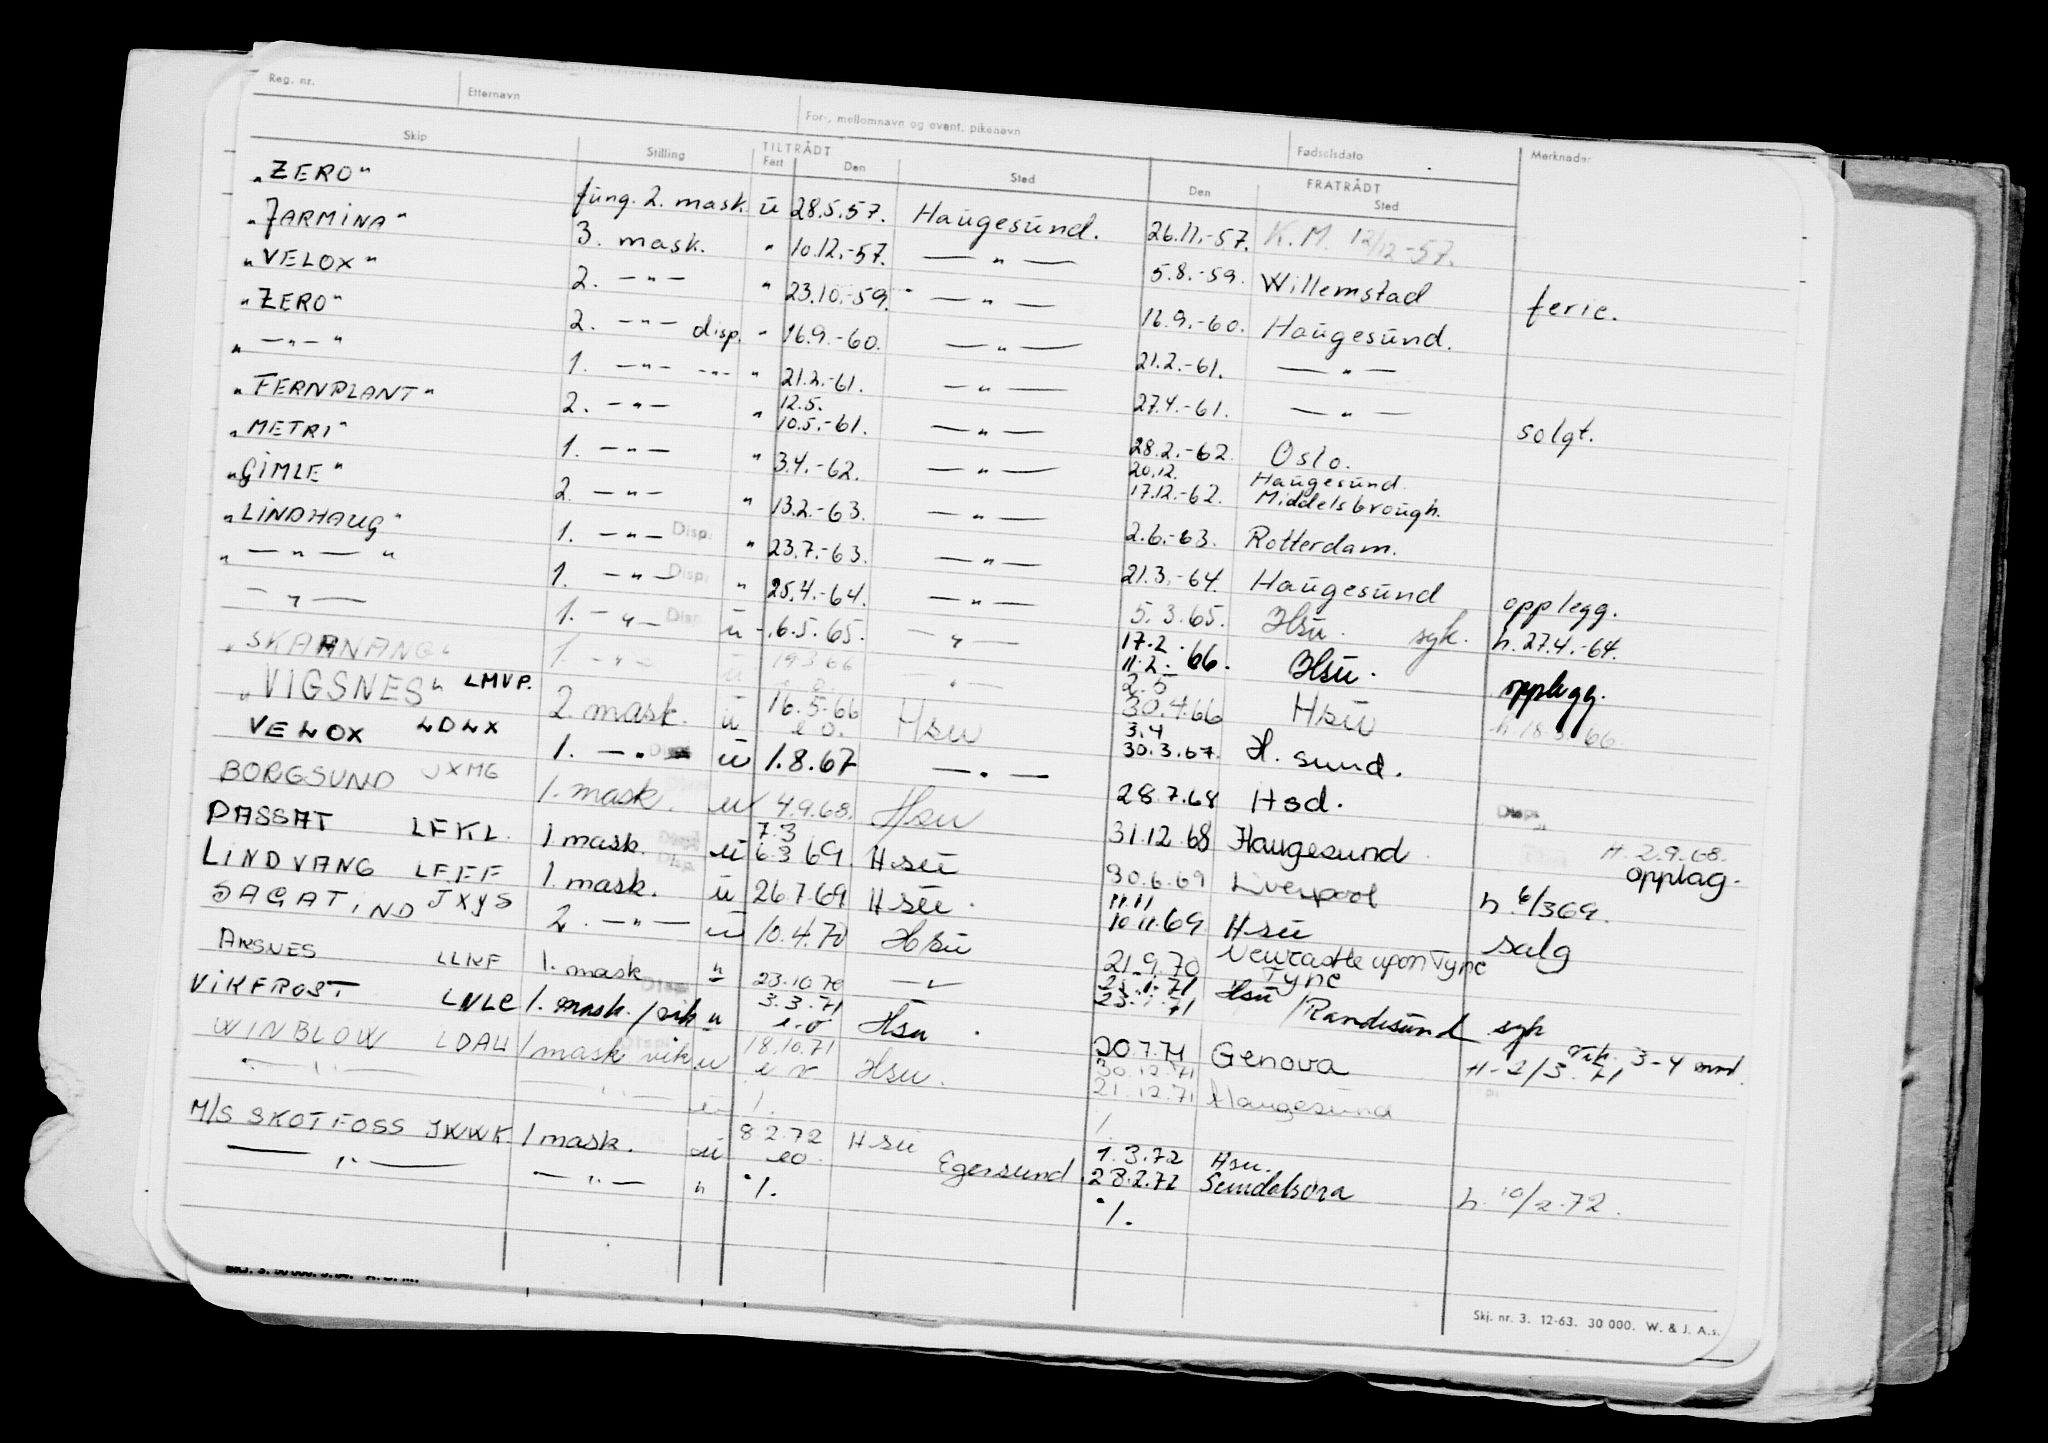 Reg. nr. Etternavn For-, mellomnavn og event. pikenavn Fødselsdato Merknader
Skip Stilling TILTRÅDT Fart Den Sted FRATRÅDT Den Sted
„ZERO" fung. 2. mask. u 28.5.57. Haugesund. 26.11.-57. K.M. 12/12-57.
„JARMINA" 3. mask. " 10.12.-57. — " — 5.8.-59. Willemstad ferie.
„VELOX" 2. -"- " 23.10.-59. — " — 16.9.-60. Haugesund.
„ZERO" 2. -"- disp. " 16.9.-60. — " — 21.2.-61. — " —
„ -"- " 1. -"- -"- " 21.2.-61. — " — 27.4.-61. — " — solgt.
„FERNPLANT" 2. -"- " 12.5. 10.5.-61. — " — 28.2.-62. Oslo.
„METRI" 1. -"- " 3.4.-62. — " — 20.12. 17.12.-62. Haugesund. Middelsbrough.
„GIMLE" 2. -"- " 13.2.-63. — " — 2.6.-63. Rotterdam.
„LINDHAUG" 1. -"- Disp. " 23.7.-63. — " — 21.3.-64. Haugesund opplegg.
„ — " — " 1. -"- Disp. " 25.4.-64. — " — 5.3.65. Hsu. syk. h. 27.4.-64.
— " — 1. -"- Disp. u 6.5.65. — " — 17.2. 11.2.66. Hsu. opplegg.
1. -"- u 2.5 30.4.66 Hsu
„VIGSNES" LMVP. 2. mask. u 16.5.66 e.o. Hsu 3.4 30.3.67. H.sund.
VELOX LDLX 1. -"- u 1.8.67 — " — 28.7.68 Hsd. Disp.
BORGSUND JXMG 1. mask. u 4.9.68. Hsu 31.12.68 Haugesund. H. 2.9.68. opplag.
PASSAT LFKL. 1 mask. Disp. u 7.3 6.3 69. Hsu 30.6.69 Liverpool h. 6/3 69.
LINDVANG LFEF 1. mask. Disp. u 26.7.69 Hsu. 11.11 10.11.69 Hsu salg
SAGATIND JXYS 2. -"- u 10.4.70 Hsu 21.9.70 Newcastle upon Tyne Tyne
AKSNES LLKF 1. mask " 23.10.70 Hsu / Randesund syk
VIKFROST LNLC 1. mask./vik u 3.3.71 e.o. Hsu. 20.7.71 Genova H-2/3.71 vik. 3-4 mnd.
WINBLOW LDAU 1 mask vik u 18.10.71 e o Hsu. 30.12.71 21.12.71 Haugesund
— " — — " — u /. /.
M/S SKOTFOSS JWWK 1 mask. u 8 2.72 eo. Hsu 1.3.72 28.2.72 Hsu. h. 10/2.72.
— " — — " — " ·/. Egersund ·/.
Skj. nr. 3. 12-63. 30 000. W. & J. A.s.